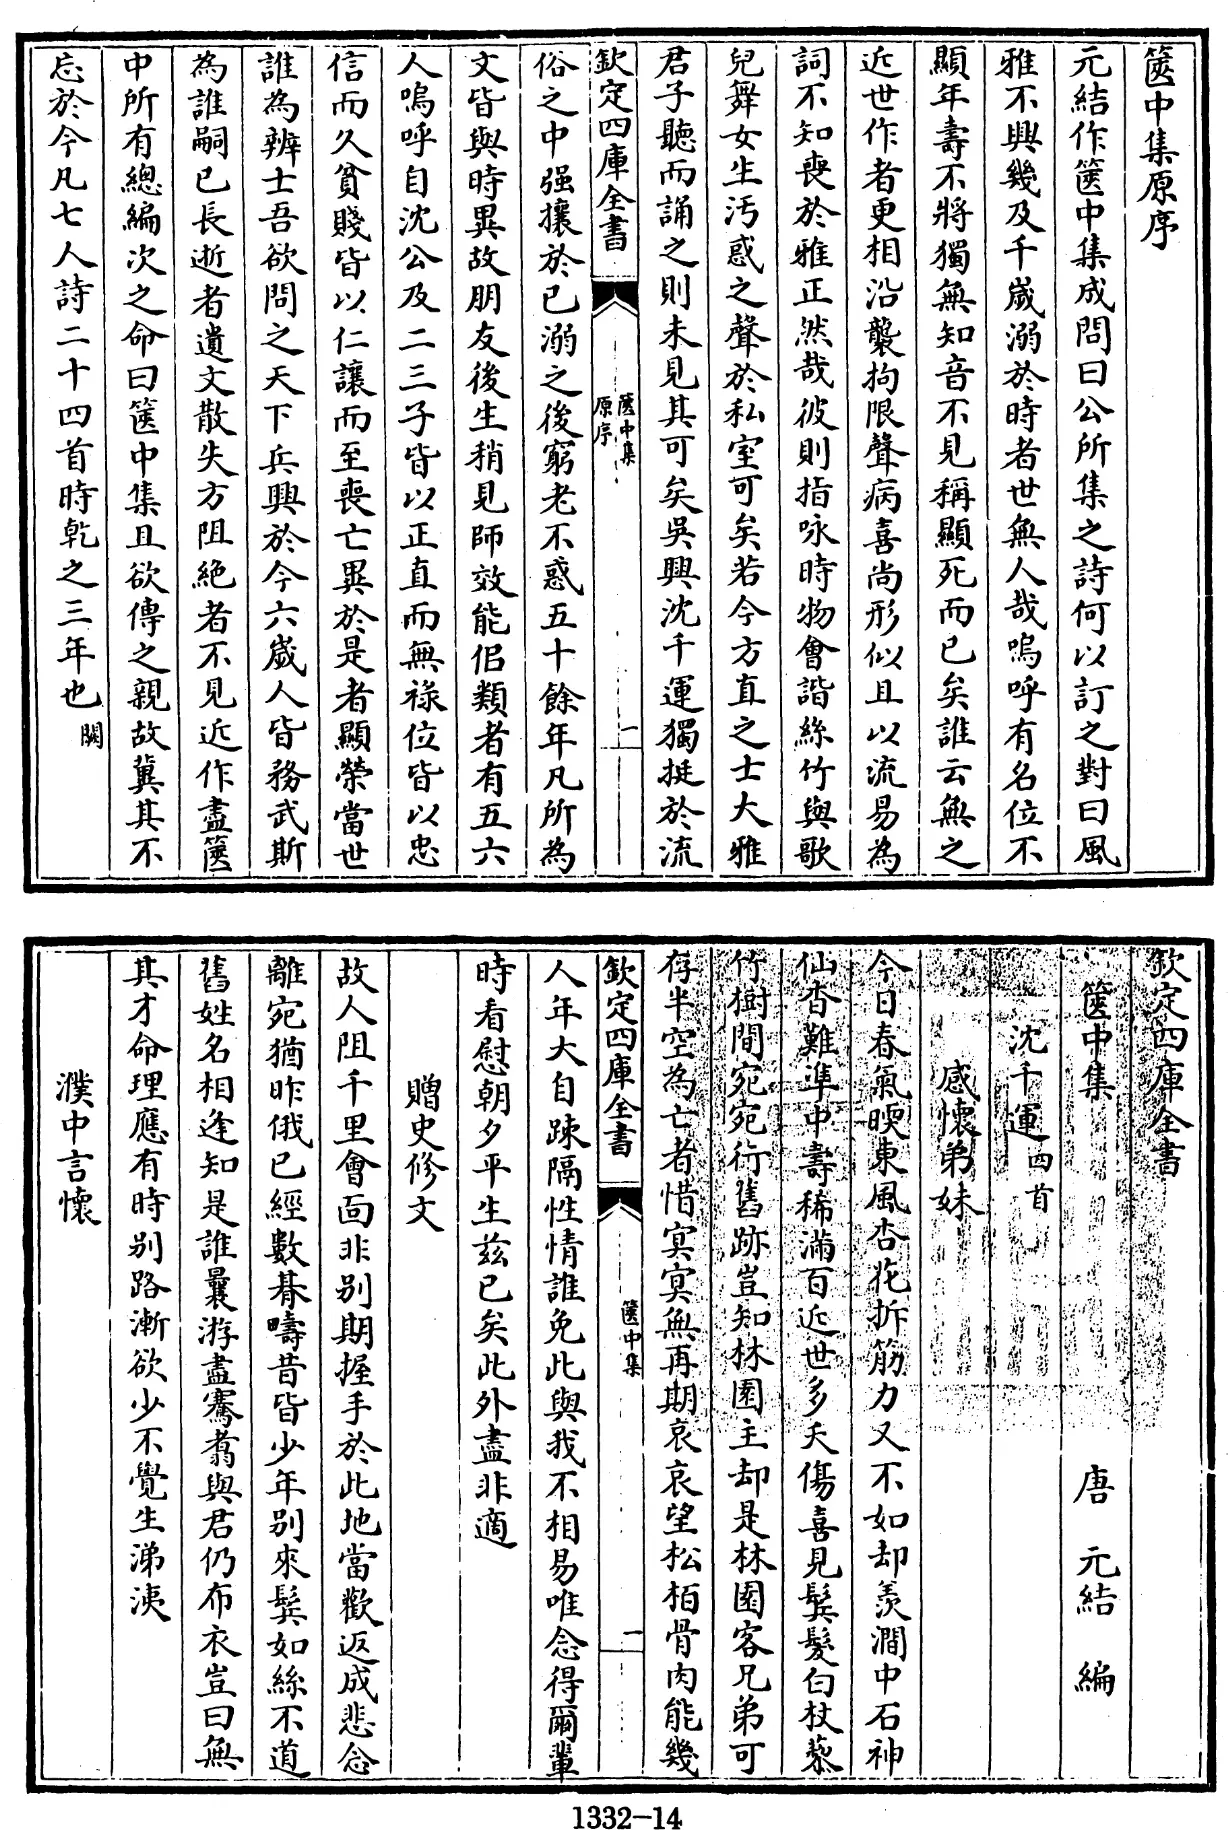 篋中集原序
元結作篋中集成問曰公所集之詩何以訂之對曰風
雅不興幾及千歲溺於時者世無人哉嗚呼有名位不
顯年壽不將獨無知音不見稱顯死而已矣誰云無之
近世作者更相沿襲拘限聲病喜尚形似且以流易為
詞不知喪於雅正然哉彼則指咏時物會諧絲竹與歌
兒舞女生汚惑之聲於私室可矣若今方直之士大雅
君子聽而誦之則未見其可矣吳興沈千運獨挺於流
欽定四庫全書
篋中集
原序
一
俗之中强攘於已溺之後窮老不惑五十餘年凡所為
文皆與時異故朋友後生稍見師效能侶類者有五六
人嗚呼自沈公及二三子皆以正直而無祿位皆以忠
信而久貧賤皆以仁讓而至喪亡異於是者顯榮當世
誰為辨士吾欲問之天下兵興於今六歲人皆務武斯
為誰嗣已長逝者遺文散失方阻絶者不見近作盡篋
中所有總編次之命曰篋中集且欲傳之親故冀其不
忘於今凡七人詩二十四首時乾之三年也闕
欽定四庫全書
篋中集
唐 元結 編
沈千運四首
感懷弟妹
今日春氣暎東風杏花拆筋力又不如却羨澗中石神
仙杳難準中壽稀滿百近世多夭傷喜見鬢髮白杖藜
竹樹間宛宛行舊跡豈知林園主却是林園客兄弟可
存半空為亡者惜冥冥無再期哀哀望松栢骨肉能幾
欽定四庫全書
篋中集
一
人年大自踈隔性情誰免此與我不相易唯念得爾輩
時看慰朝夕平生兹已矣此外盡非適
贈史修文
故人阻千里會面非别期握手於此地當歡返成悲念
離宛猶昨俄已經數朞疇昔皆少年别來鬢如絲不道
舊姓名相逢知是誰曩游盡騫翥與君仍布衣豈曰無
其才命理應有時别路漸欲少不覺生涕洟
濮中言懷
1332-14